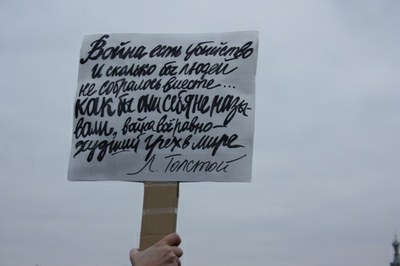 Война есть убийство
И сколько бы людей
не собралось вместе...
как бы они себя не назы-
вали, война всё равно-
худший грех в мире
Л. Толстой